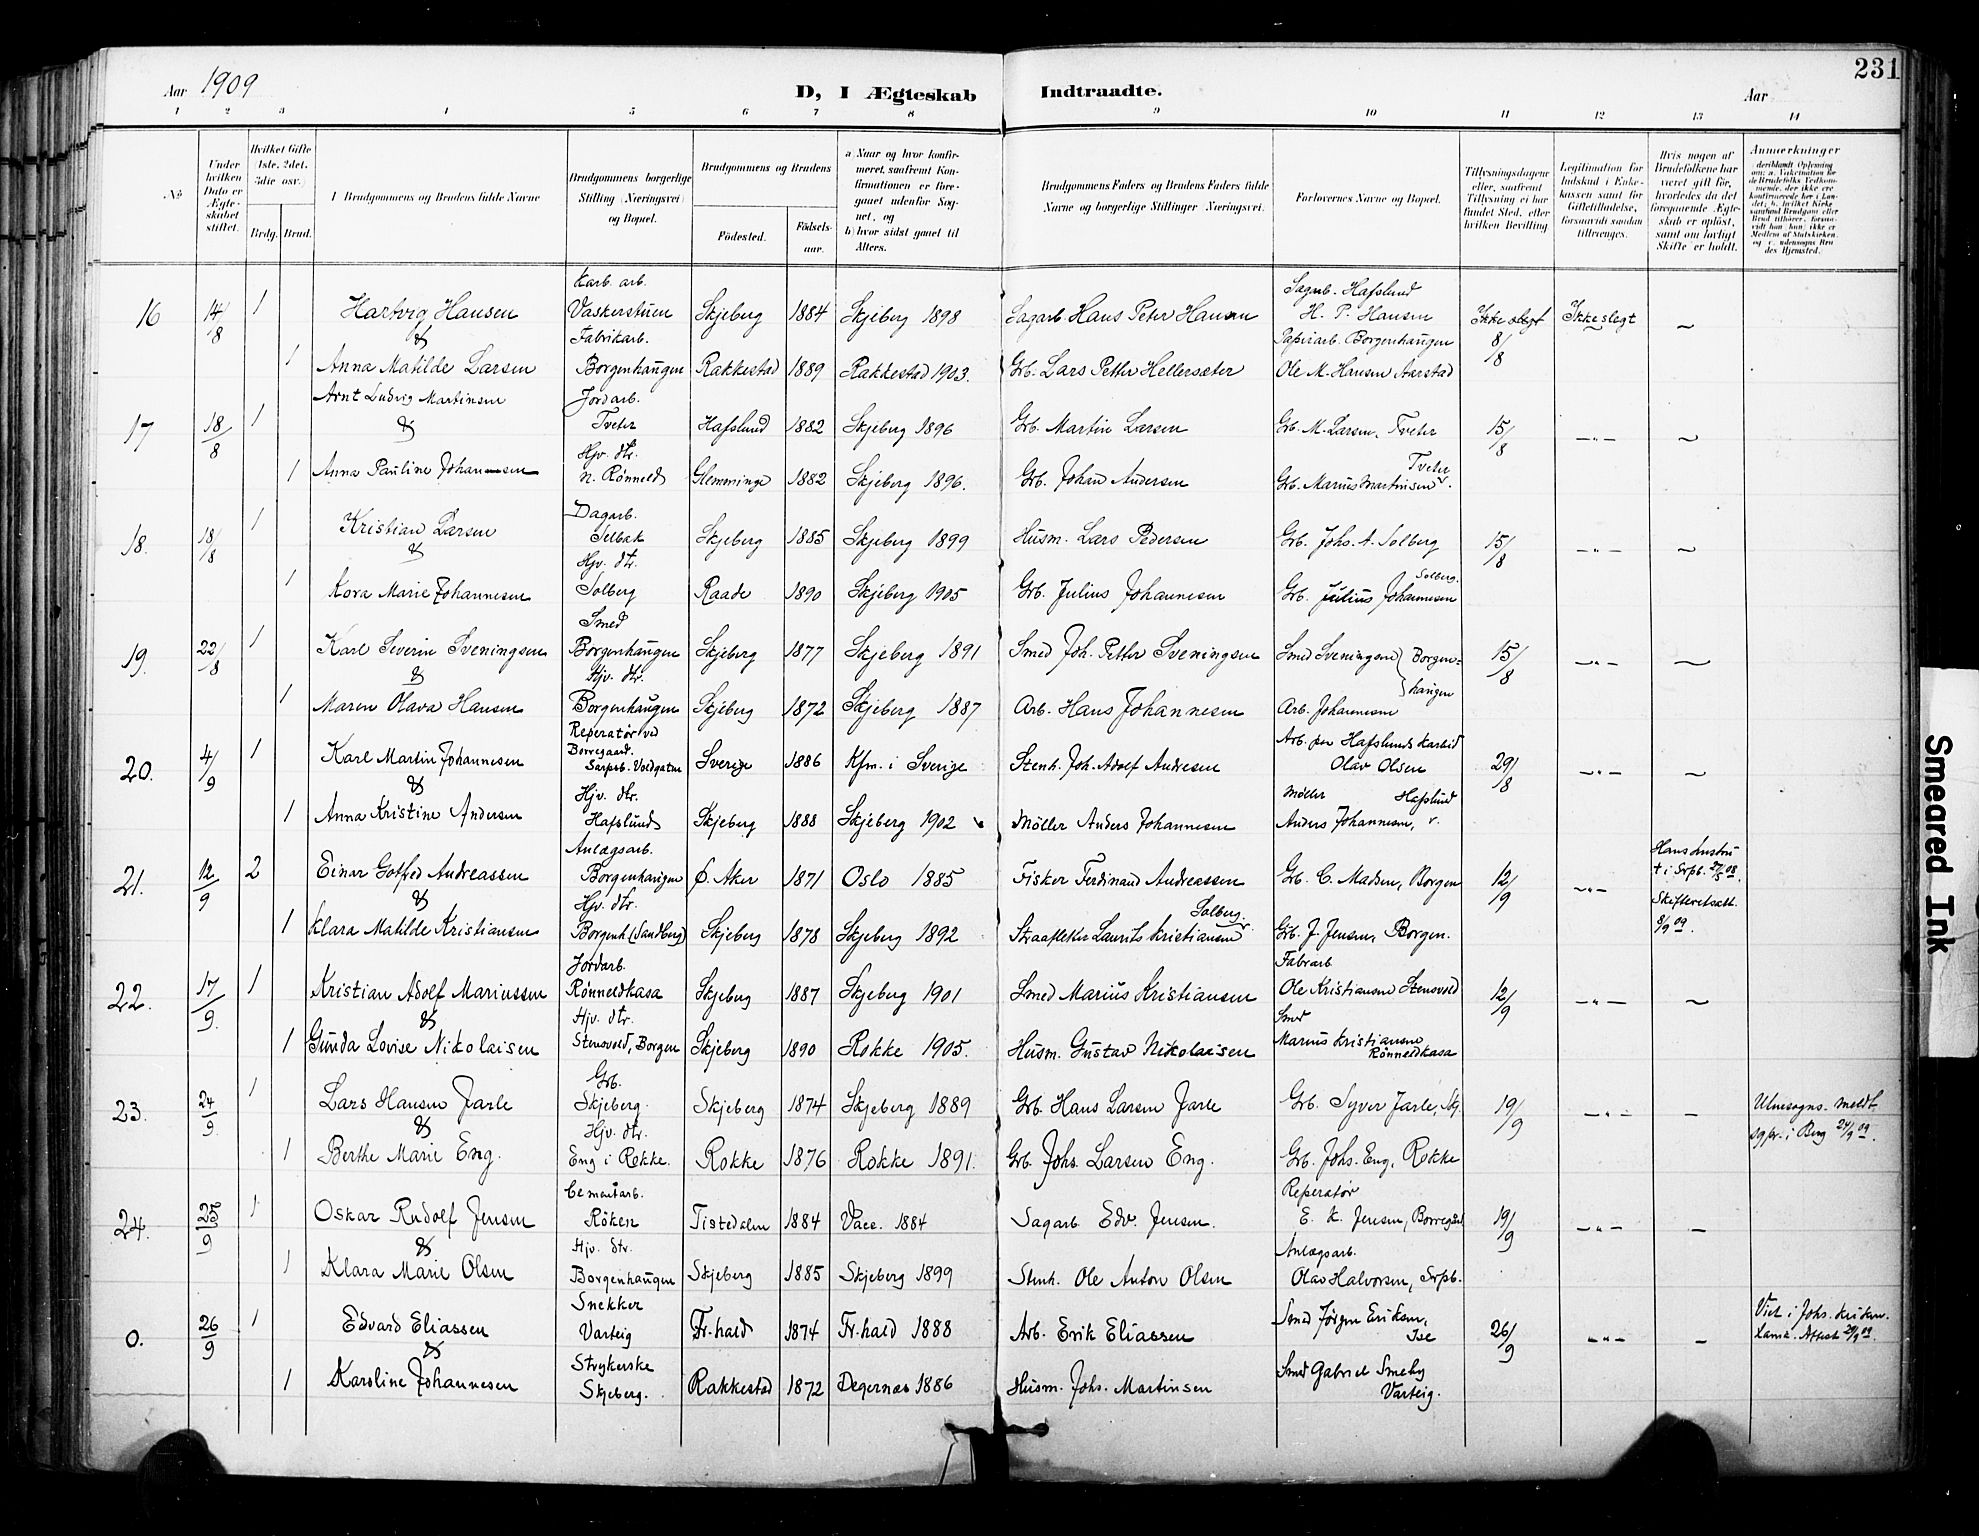 231
Aar 1909 D, I Ægteskab Indtraadte. Aar
1 2 3 4 5 6 7 8 9 10 11 12 13 14
No.
Under hvilken Dato er Ægteskabet stiftet.
Hvilket Gifte (1ste, 2det, 3die osv.)
Brdg. Brud.
Brudgommens og Brudens fulde Navne
Brudgommens borgerlige Stilling (Næringsvei) og Bopæl.
Brudgommens og Brudens
Fødested. Fødselsaar.
a Naar og hvor konfirmeret, saafremt Konfirmationen er foregaaet udenfor Sognet, og
b hvor sidst gaaet til Alters.
Brudgommens Faders og Brudens Faders fulde Navne og borgerlige Stillinger Næringsvei.
Forlovernes Navne og Bopæl.
Tillysningsdagene eller, saafremt Tillysning ei har fundet Sted, efter hvilken Bevilling
Legitimation for Indskud i Enkekassen samt for Giftetilladelse, forsaavidt saadan tiltrænges.
Hvis nogen af Brudefolkene har været gift før, hvorledes da det foregaaende Ægteskab er opløst, samt om lovligt Skifte er holdt.
Anmærkninger
16 14/8 1 Hartvig Hansen Karb. arb. Vaskerstuen Skjeberg 1884 Skjeberg 1898 Sagarb. Hans Peter Hansen Sagarb. Hafslund H. P. Hansen Ikke slegt 8/8 Ikke slegt ~
&
1 Anna Matilde Larsen Fabrikarb. Borgenhaugen Rakkestad 1889 Rakkestad 1903. Grb. Lars Petter Hellersæter Papirarb. Borgenhaugen Ole M. Hansen Aarstad
17 18/8 1 Arnt Ludvig Martinsen Jordarb. Tveter Hafslund 1882 Skjeberg 1896 Grb. Martin Larsen Grb. M. Larsen, Tveter 15/8 —"— ~
&
1 Anna Pauline Johannesen Hjv. dtr. n. Rønneld Glemminge 1882 Skjeberg 1896. Grb. Johan Andersen Grb. Marius Martinsen Tveter v.
18. 18/8 1 Kristian Larsen Dagarb. Selbak Skjeberg 1885 Skjeberg 1899 Husm. Lars Pedersen Grb. Johs. A. Solberg 15/8 —"— ~
&
1 Kora Marie Johannesen Hjv. dtr. Solberg Raade 1890 Skjeberg 1905 Grb. Julius Johannesen Grb. Julius Johannesen Solberg.
19. 22/8 1 Karl Severin Sveningsen Smed Borgenhaugen Skjeberg 1877 Skjeberg 1891 Smed Joh. Petter Sveningsen Smed Sveningsen } Borgenhaugen 15/8 —"— ~
&
1 Maren Olava Hansen Hjv. dtr. Borgenhaugen Skjeberg 1872 Skjeberg 1887 Arb. Hans Johannesen Arb. Johannesen
20. 4/9 1 Karl Martin Johannesen Reperatør ved Borregaard. Sarpsb. Voldgaten Sverige 1886 Kfm. i Sverige Stenh. Joh. Adolf Andresen Arb. Hafslunds Karbid Olav Olsen 29/8 —"— ~
&
1 Anna Kristine Andersen Hjv. dtr. Hafslund Skjeberg 1888 Skjeberg 1902 Møller Anders Johannesen Møller Anders Johannesen, Hafslund v.
21. 12/9 2 Einar Gotfred Andreassen Anlægsarb. Borgenhaugen Ø. Aker 1871 Oslo 1885 Fisker Ferdinand Andreassen Grb. C. Madsen, Borgen 12/9 —"— Hans hustru † i Srpb. 27/5 08. Skifteretsatt. 8/9 09.
&
1 Klara Matilde Kristiansen Hjv. dtr. Borgenh. (Sandberg) Skjeberg 1878 Skjeberg 1892 Laurits Kristiansen Solberg v. Grb. J. Jensen, Borgen.
22. 17/9. 1 Kristian Adolf Mariussen Jordarb. Rønneldkasa Skjeberg 1887 Skjeberg 1901 Smed Marius Kristiansen Fabrarb Ole Kristiansen Stensvold 12/9 —"— ~
&
1 Gunda Lovise Nikolaisen Hjv. dtr. Stensvold, Borgen Skjeberg 1890 Rokke 1905. Husm. Gustav Nikolaisen Smed Marius Kristiansen Rønneldkasa
23. 24/9. 1 Lars Hansen Jarle Grb. Skjeberg. Skjeberg 1874 Skjeberg 1889 Grb. Hans Larsen Jarle Grb. Syver Jarle, Skj. 19/9 —"— – Utnesogns. meldt sgpr. i Berg 24/9 09.
&
1 Berthe Marie Eng. Hjv. dtr. Eng i Rokke. Rokke 1876 Rokke 1891. Grb. Johs. Larsen Eng. Grb. Johs. Eng, Rokke
24. 25/9 1 Oskar Rudolf Jensen Cementarb. Røken Tistedalen 1884 Vacc. 1884 Sagarb. Edv. Jensen. Reperatør E. K. Jensen, Borregård 19/9 —"— –
&
1 Klara Marie Olsen Hjv. dtr. Borgenhaugen Skjeberg 1885 Skjeberg 1899 Stenh. Ole Anton Olsen Anlægsarb. Olav Halvorsen, Srpb.
0. 26/9 1 Edvard Eliassen Snekker Varteig Fr.hald 1874 Fr.hald 1888 Arb. Erik Eliassen Smed Jørgen Eriksen, Ise 26/9 —"— – Viet i Johs. kirken. Attest 29/9 09.
&
1 Karoline Johannesen Strykerske Skjeberg. Rakkestad 1872 Degernæs 1886 Husm. Johs. Martinsen Smed Gabriel Smeby Varteig.
Smeared Ink